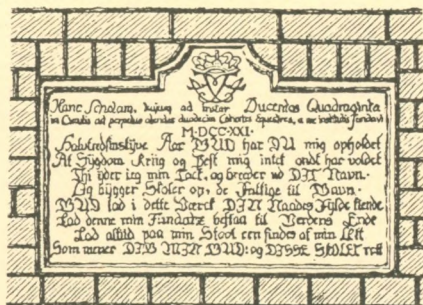 Hanc Scholam, hujus ad instar Ducentas Quadraginta
in Circulis ad perpetuo alendas duodecim Cohortes Equestres, a me institutis fundavi
M·DCC·XXI·
Halvtredsinstyve Aar GUD har DU mig opholdet
At Sygdom Kriig og Pest mig intet ondt har voldet
Thi yder ieg min Tack, og breeder ud DIT Navn·
Og bygger Skoler op, de Fattige til Gavn·
GUD lad i dette Værck DIN Naades Fylde kiende
Lad denne min Fundatz bestaa til Verdens Ende
Lad altid paa min Stool een findes af min Ætt
Som mener DIG MIN GUD: og DISSE SKOLER rett